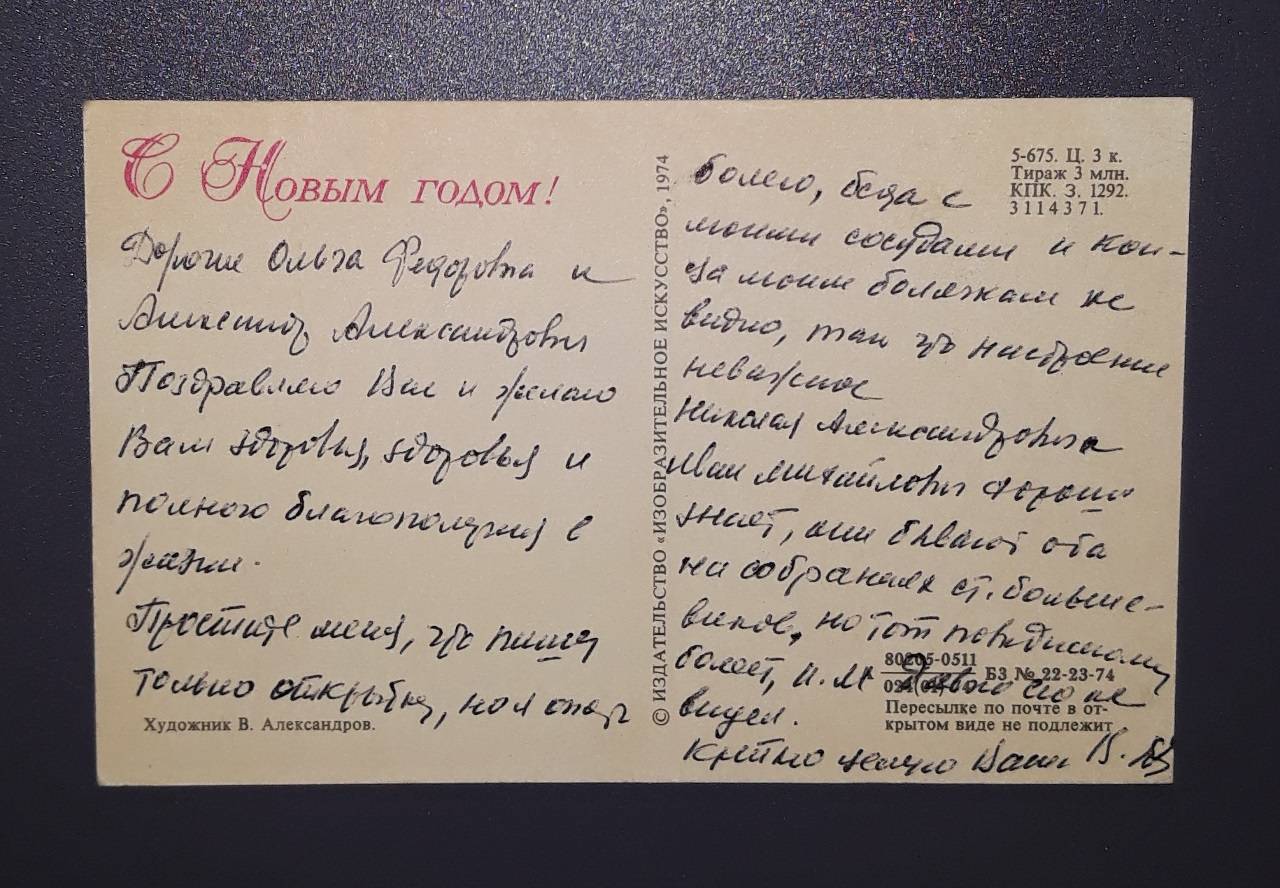 С Новым годом!
Дорогие Ольга Федоровна и
Александр Александрович
Поздравляю Вас и желаю
Вам здоровья, здоровья и
полного благополучия в
жизни.
Простите меня, что пишу
только открытку, но я опять
Художник В. Александров.
© ИЗДАТЕЛЬСТВО «ИЗОБРАЗИТЕЛЬНОЕ ИСКУССТВО», 1974
5-675. Ц. 3 к.
Тираж 3 млн.
КПК. З. 1292.
3114371.
болею, беда с
моими сосудами и кон-
ца моим болячкам не
видно, так что настроение
неважное
Николая Александровича
Иван Михайлович хорошо
знает, они бывают оба
на собраниях ст. больше-
виков, но тот повидимому
болеет, И.М давно его не
видел.
Крепко целую Ваш В.
80205-0511
БЗ № 22-23-74
Пересылке по почте в от-
крытом виде не подлежит